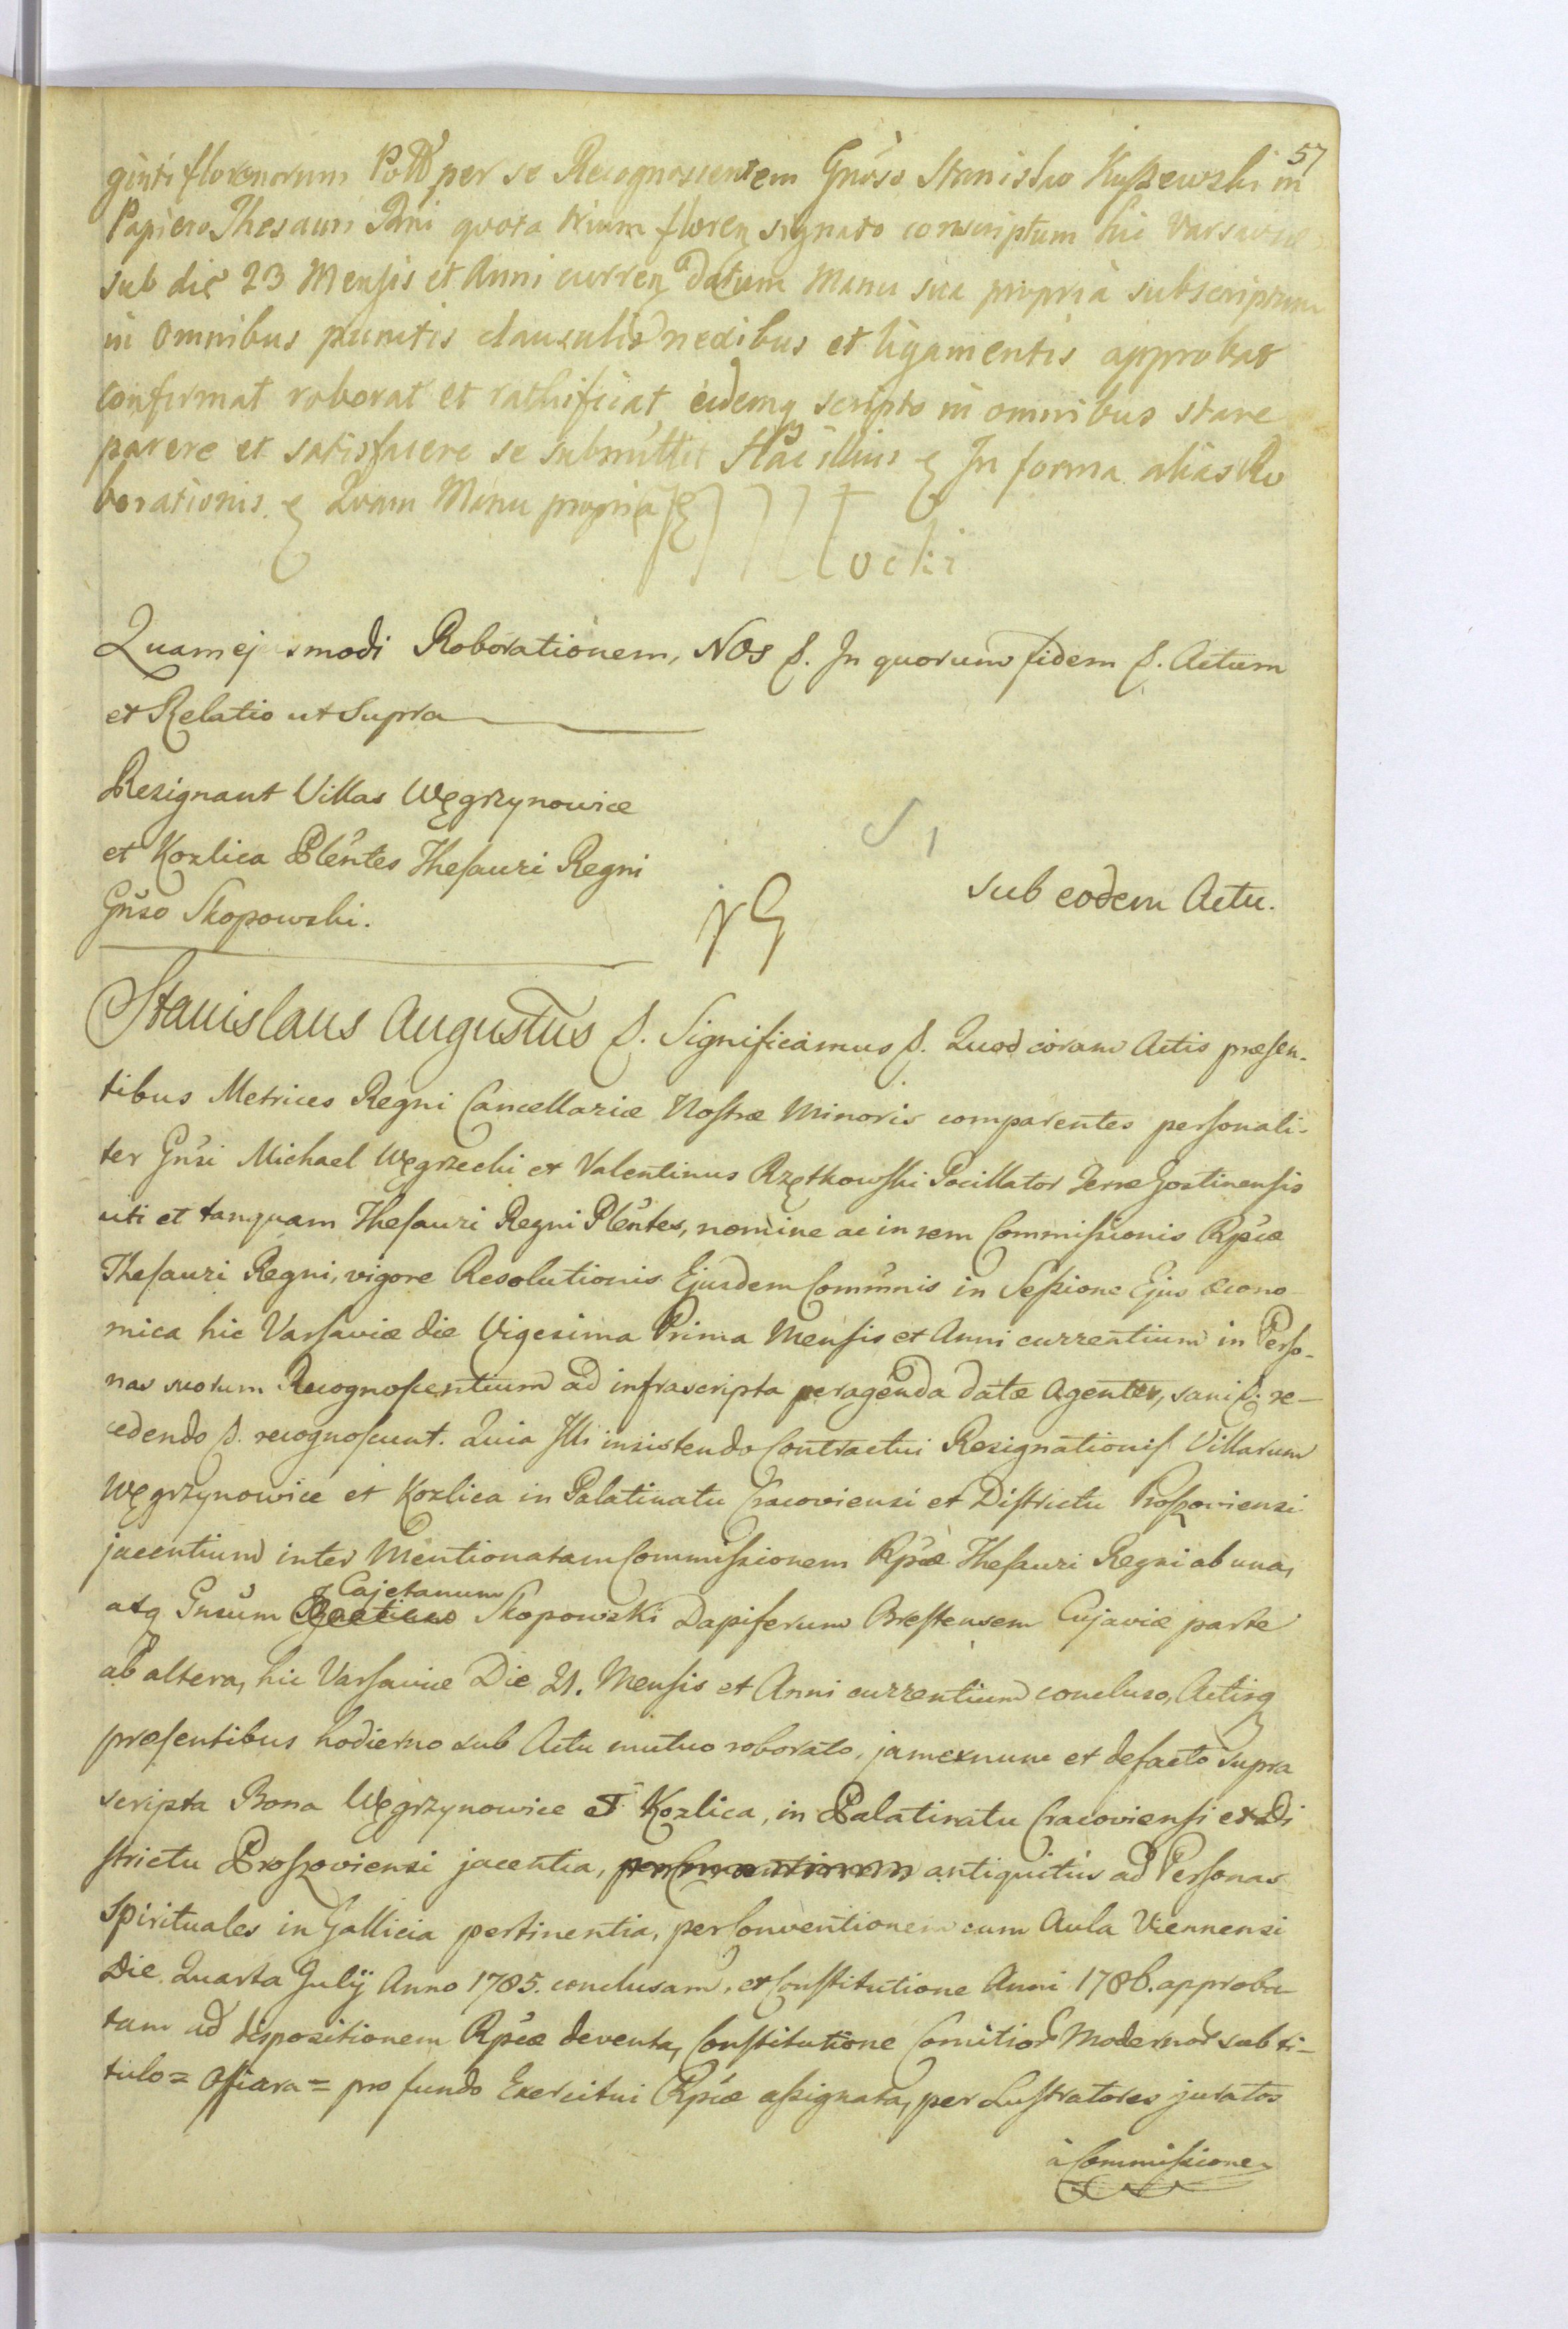 57
ginti florenorum Polł per se Recognoscentem Gnoso Stanislao Kuszewski in
Papiero Thesauri Rni quota trium floren signato conscriptum hic Varsaviæ
sub die 23 Mensis et Anni curren datum Manu sua propria subscriptum
in omnibus punctis clausulis nexibus et ligamentis approbat
confirmat roborat et rathificat eidemq scripto in omnibus stare
parere et satisfacere se submittit Stae illius In forma alias Ro
borationis. Quam Manu propria
Quam ejusmodi Roborationem, NOS &. In quorum fidem &. Actum
et Relatio ut Supra
Resignant Villas Węgrzynowice
et Kozlica Plentes Thesauri Regni
Gnso Skopowski.
sub eodem Actu.
Stanislaus Augustus &. Significamus &. Quod coram Actis præsen-
tibus Metrices Regni Cancellariæ Nostræ Minoris comparentes personali-
ter Gnsi Michael Węgrzecki et Valentinus Rzętkowski Pocillator Terræ Gostinensis
uti et tanquam Thesauri Regni Plentes, nomine ac in rem Commissionis Rpcæ
Thesauri Regni, vigore Resolutionis Ejusdem Commnis in Sessione Ejus œcono-
mica hic Varsaviæ die Vigesima Prima Mensis et Anni currentium in Perso-
nas suorum Recognoscentium ad infrascripta peragenda datæ Agentes, sani &. re-
cedendo &. recognoscunt. Quia Illi insistendo Contractui Resignationis Villarum
Węgrzynowice et Kozlica in Palatinatu Cracoviensi et Districtu Proszoviensi
jacentium inter Mentionatam Commissionem Rpcæ Thesauri Regni ab una,
atq Gnsum Cajetanum Skopowski Dapiferum Brestensem Cujaviæ parte
ab altera, hic Varsaviæ Die 21. Mensis et Anni currentium concluso, Actisq
præsentibus hodierno sub Actu mutuo roborato, jam ex nunc et de facto supra
scripta Bona Węgrzynowice et Kozlica, in Palatinatu Cracoviensi et Di
strictu Proszoviensi jacentia, antiquitus ad Personas
Spirituales in Gallicia pertinentia, per Conventionem cum Aula Viennensi
Die Quarta Julij Anno 1785. conclusam, et Constitutione Anni 1786. approba
tam ad dispositionem Rpcæ deventa, Constitutione Comitior Modernor sub ti-
tulo = Ofiara = pro fundo Exercitui Rpcæ assignata, per Lustratores juratos
à Commissione